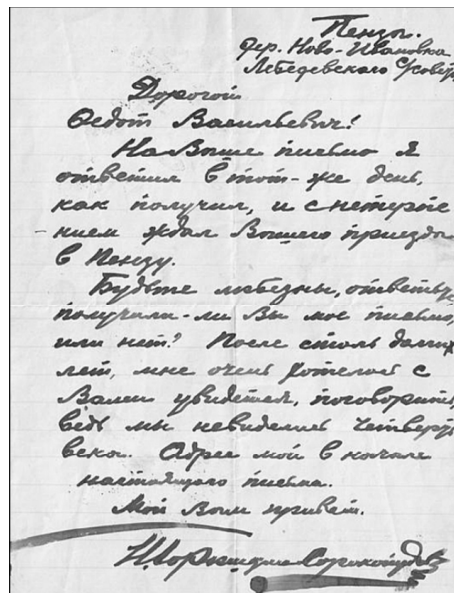 Пенза.
дер. Ново-Ивановка
Лебедевского
Дорогой
Федот Васильевич!
На Ваше письмо я
ответил в тот-же день,
как получил, и с нетерпе
нием ждал Вашего приезда
в Пензу.
Будьте любезны, ответьте,
получили-ли Вы мое письмо,
или нет? После столь долгих
лет, мне очень хотелось с
Вами увидеться, поговорить,
ведь мы невиделись четверть
века. Адрес мой в начале
настоящего письма.
Мой Вам привет.